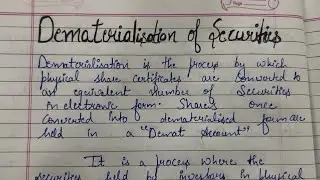 Dematerialisation of Securities
Dematerialisation is the process by which
physical share certificates are converted to
an equivalent number of Securities
in electronic form. Shares once
converted into dematerialised form are
held in a "Demat Account"
It is a process where the
securities held by investors in physical